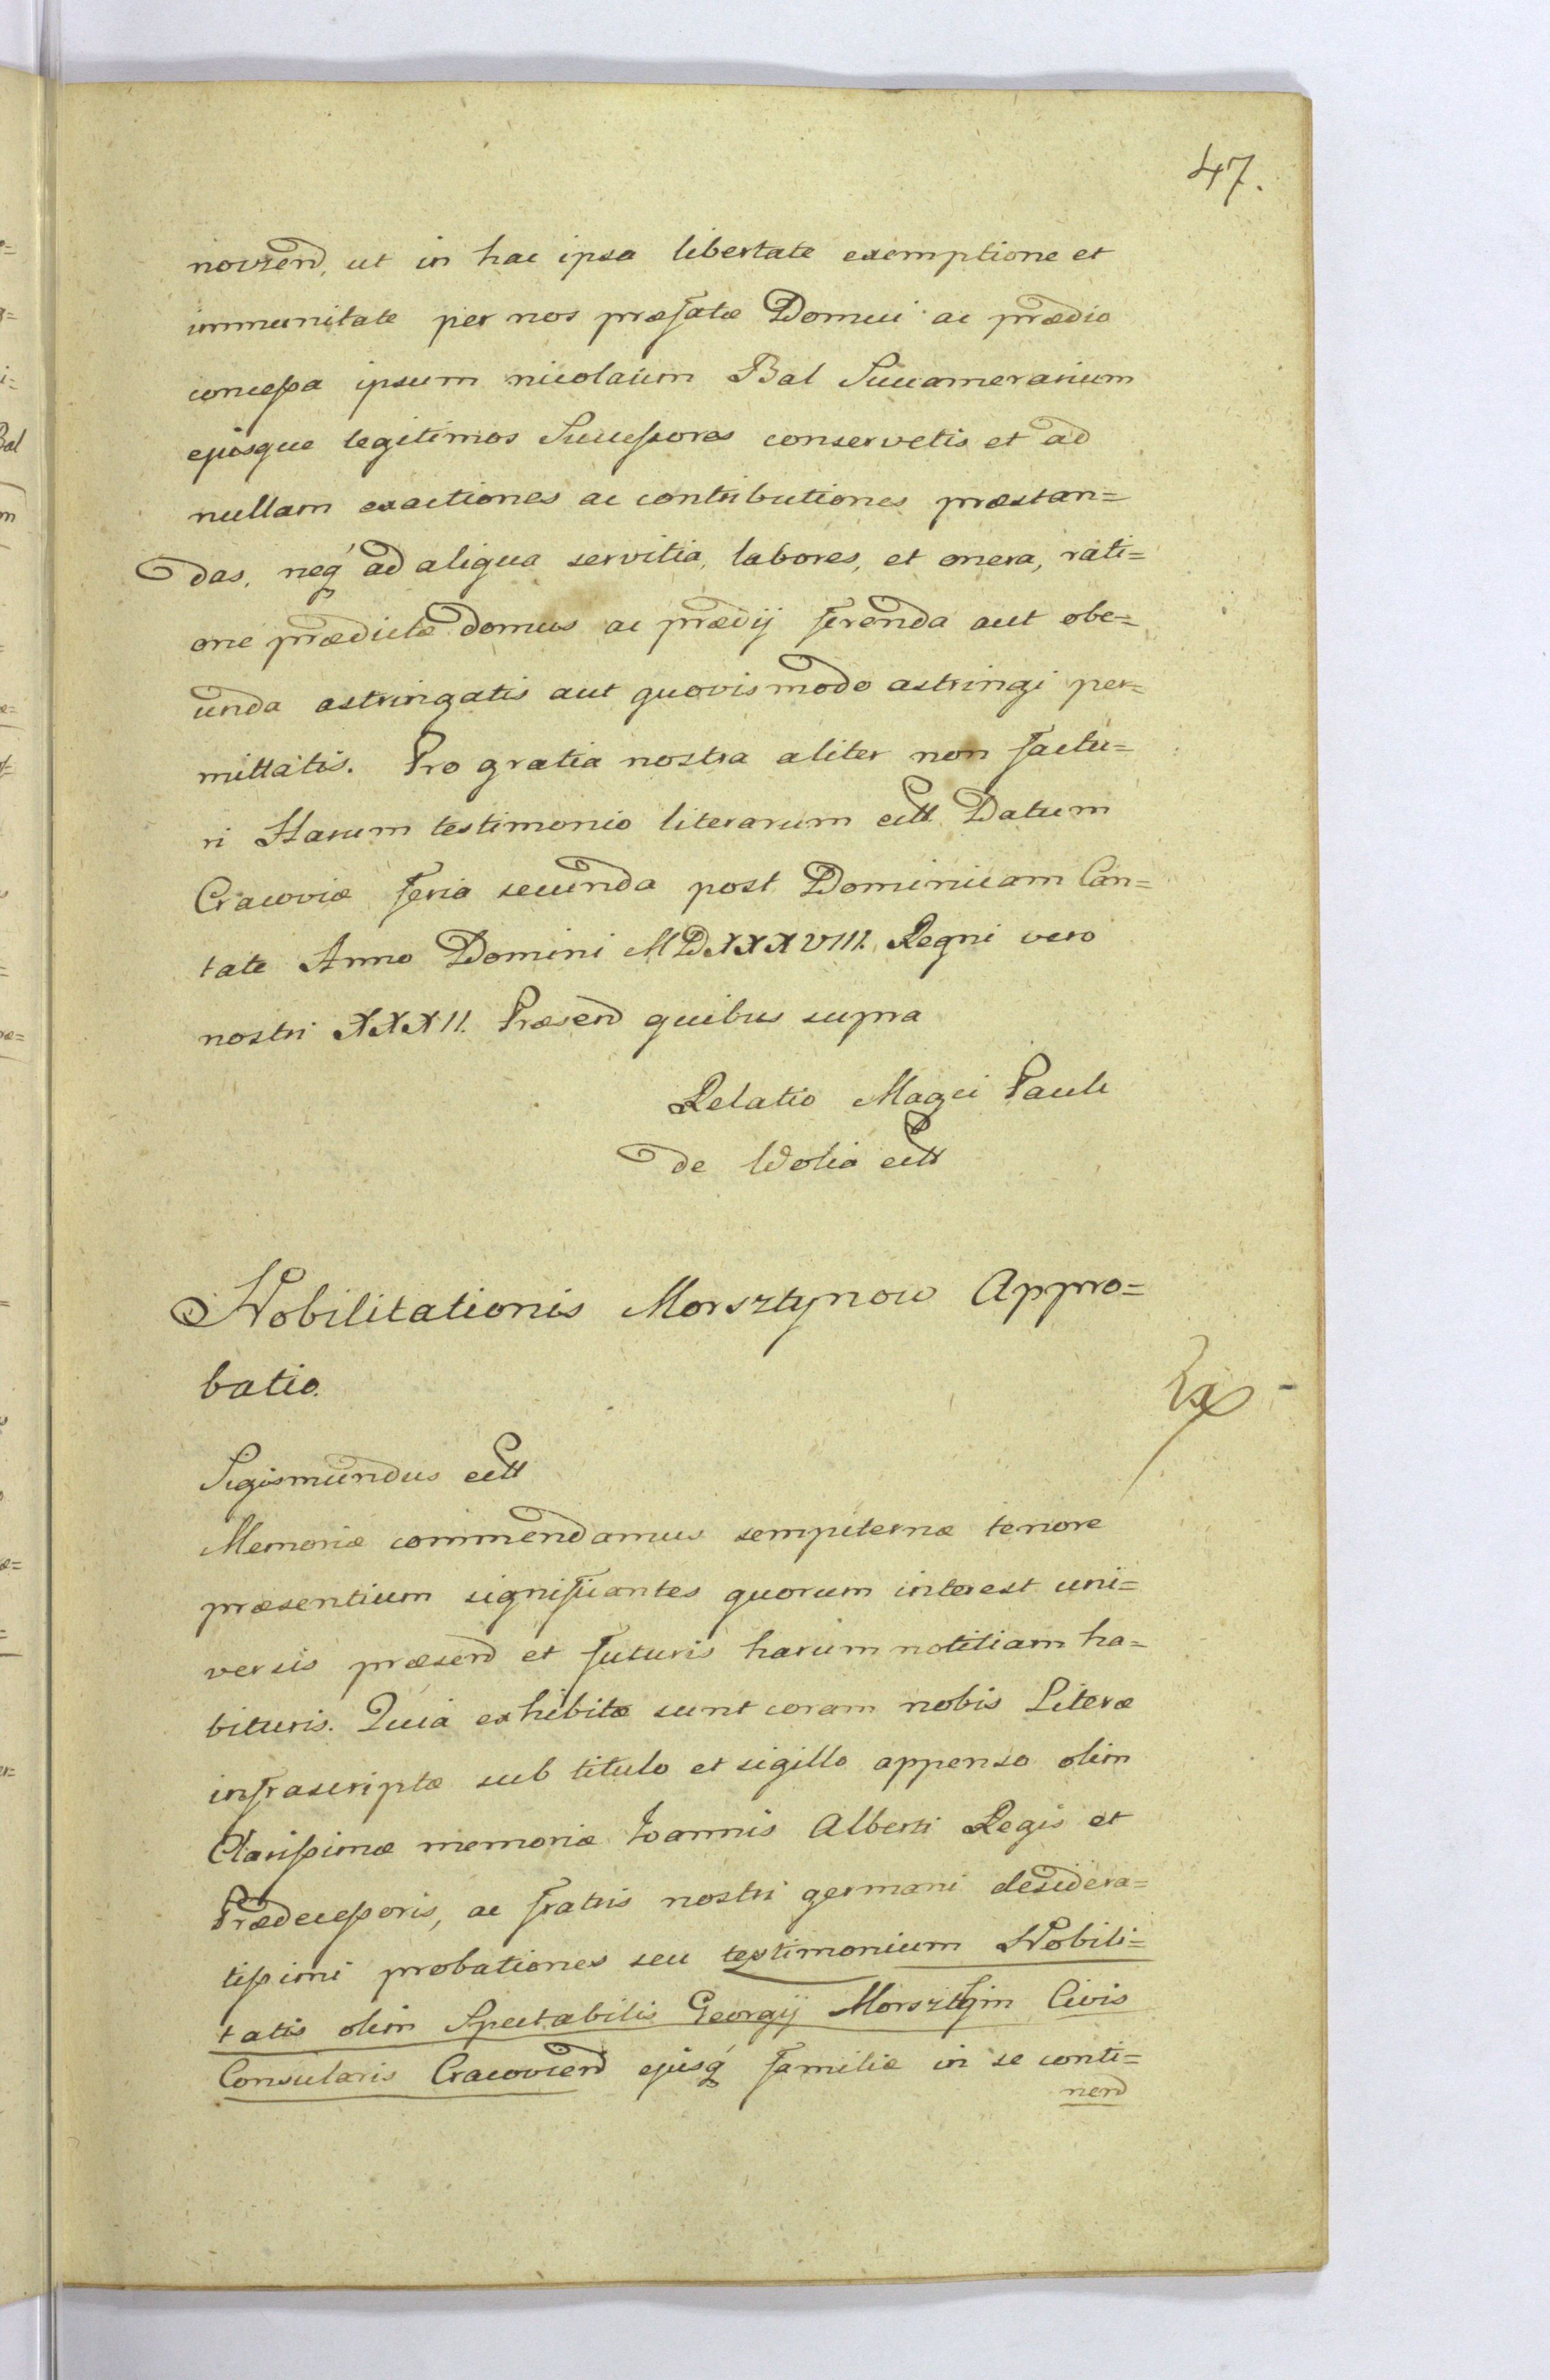 47.
novzend, ut in hac ipsa libertate exemptione et
immunitate per nos præfatæ Domui ac prædio
concessa ipsum nicolaum Bal Succamerarium
ejusque legitimos Successores conservetis et ad
nullam exactiones ac contributiones præstan=
das, neq́ ad aliqua servitia, labores, et onera, rati=
one prædictæ domus ac prædij ferenda aut obe=
unda astringatis aut quovismodo astringi per=
mittatis. Pro gratia nostra aliter non factu=
ri Harum testimonio literarum ett Datum
Cracoviæ feria secunda post Dominicam Can=
tate Anno Domini MDXXXVIII. Regni vero
nostri XXXII. Præsend quibus supra
Relatio Magci Pauli
de Wolia ett
Nobilitationis Morsztynow Appro=
batio.
Sigismundus ett
Memoriæ commendamus sempiternæ tenore
præsentium significantes quorum interest uni=
versis præsend et futuris harum notitiam ha=
bituris. Quia exhibitæ sunt coram nobis Literæ
infrascriptæ sub titulo et sigillo appenso olim
Clarissimæ memoriæ Joannis Alberti Regis et
Prædecessoris, ac fratris nostri germani desidera=
tissimi probationes seu testimonium Nobili=
tatis olim Spectabilis Georgij Morsztyn Civis
Consularis Cracoviend ejusq́ familiæ in se conti=
nend